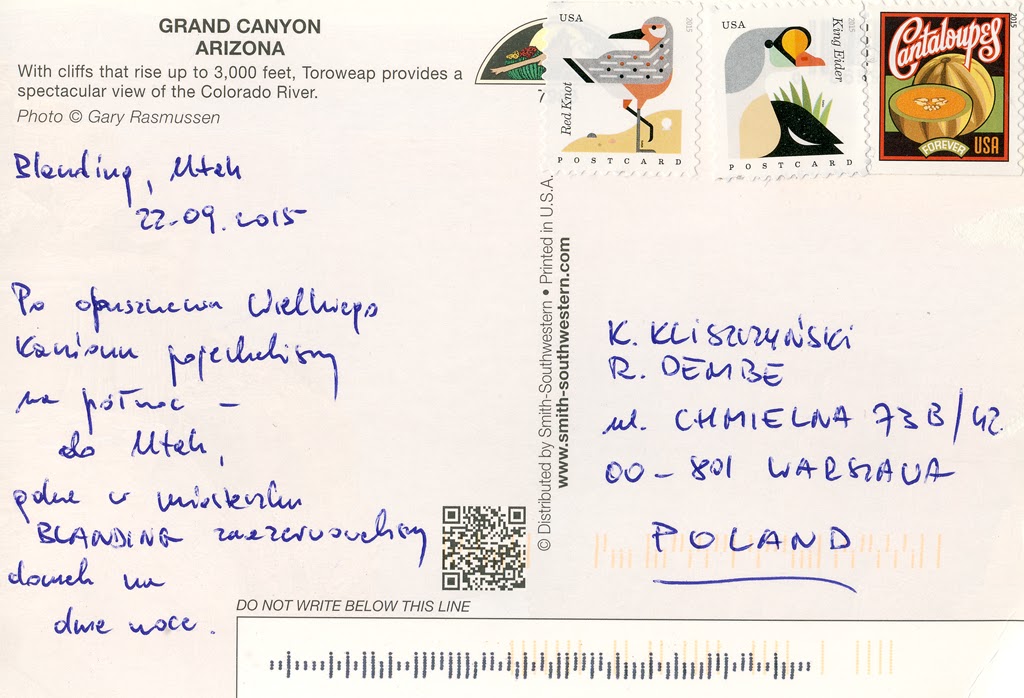 GRAND CANYON
ARIZONA
With cliffs that rise up to 3,000 feet, Toroweap provides a
spectacular view of the Colorado River.
Photo © Gary Rasmussen
USA
2015
Red Knot
POSTCARD
USA
2015
King Eider
POSTCARD
2015
Cantaloupes
FOREVER
USA
7
Blanding, Utah
22.09.2015
Po opuszczeniu Wielkiego
Kanionu pojechaliśmy
na północ –
do Utah,
gdzie w miasteczku
BLANDING zarezerwowaliśmy
domek na
dwie noce.
© Distributed by Smith-Southwestern • Printed in U.S.A.
www.smith-southwestern.com
K. KLISZCZYŃSKI
R. DEMBE
ul. CHMIELNA 73B/42.
00-801 WARSZAWA
POLAND
DO NOT WRITE BELOW THIS LINE